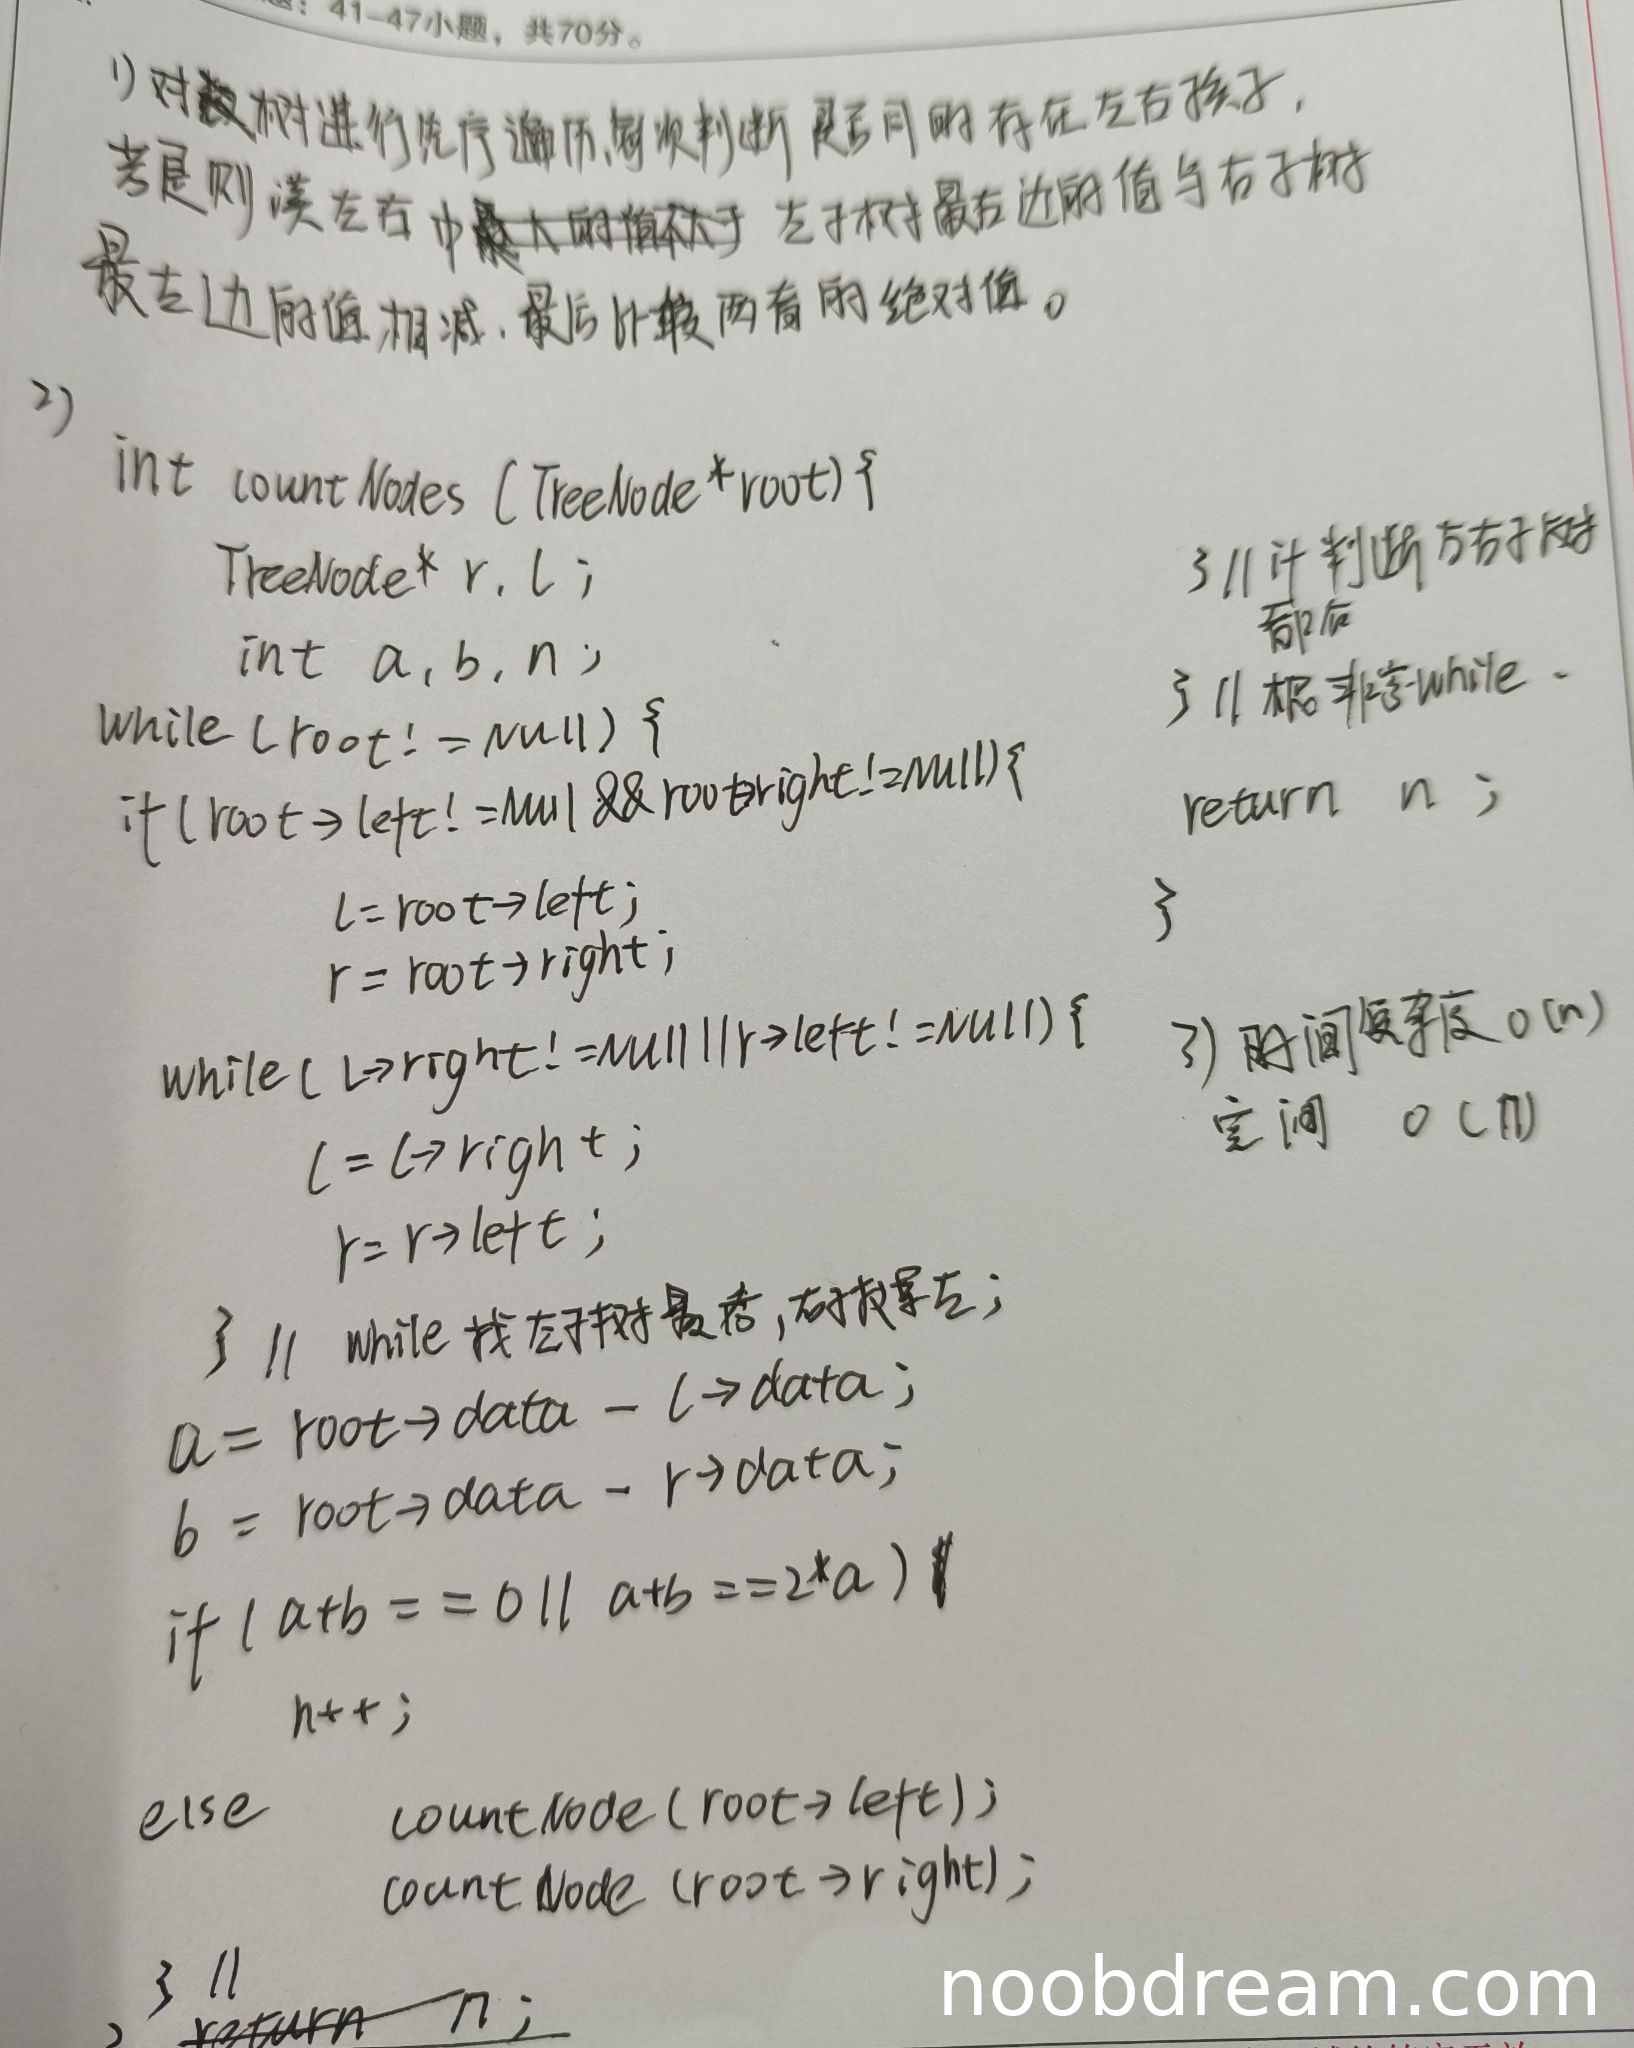 41-47小题，共70分。
1) 对树进行先序遍历,每次判断是否同时存在左右孩子,
若是则 左右中最大的值不大于 左子树最右边的值与右子树
最左边的值相减.最后比较两者的绝对值。
2)
int countNodes (TreeNode*root){
TreeNode* r, l ;
int a, b, n ;
while (root!=Null) {
if (root→left!=Null && root→right!=Null){
l=root→left;
r=root→right;
while( l→right!=Null||r→left!=Null) {
l=l→right;
r=r→left;
} // while 找左子树最右,右子找最左;
a= root→data - l→data;
b = root→data - r→data;
if ( a+b==0|| a+b==2*a)
n++;
else countNode(root→left);
countNode (root→right);
} //
return n;
} // 判断左右子树
} // 根非空while.
return n ;
}
3) 时间复杂度 O(n)
空间 O(n)
noobdream.com